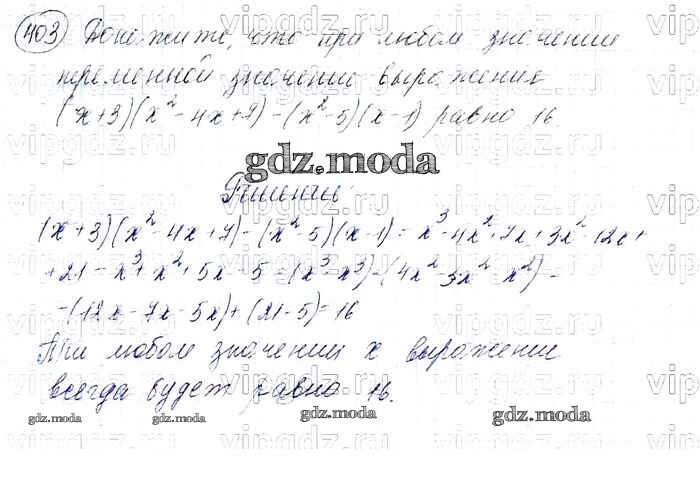 403 Докажите, что при любом значении
переменной значение выражения
(x+3)(x²-4x+7)-(x²-5)(x-1) равно 16
gdz.moda
Решение
(x+3)(x²-4x+7)-(x²-5)(x-1)=x³-4x²+7x+3x²-12x+
+21-x³+x²+5x-5=(x³-x³)-(4x²-3x²-x²)-
-(12x-7x-5x)+(21-5)=16
При любом значении x выражение
всегда будет равно 16.
gdz.moda gdz.moda gdz.moda gdz.moda